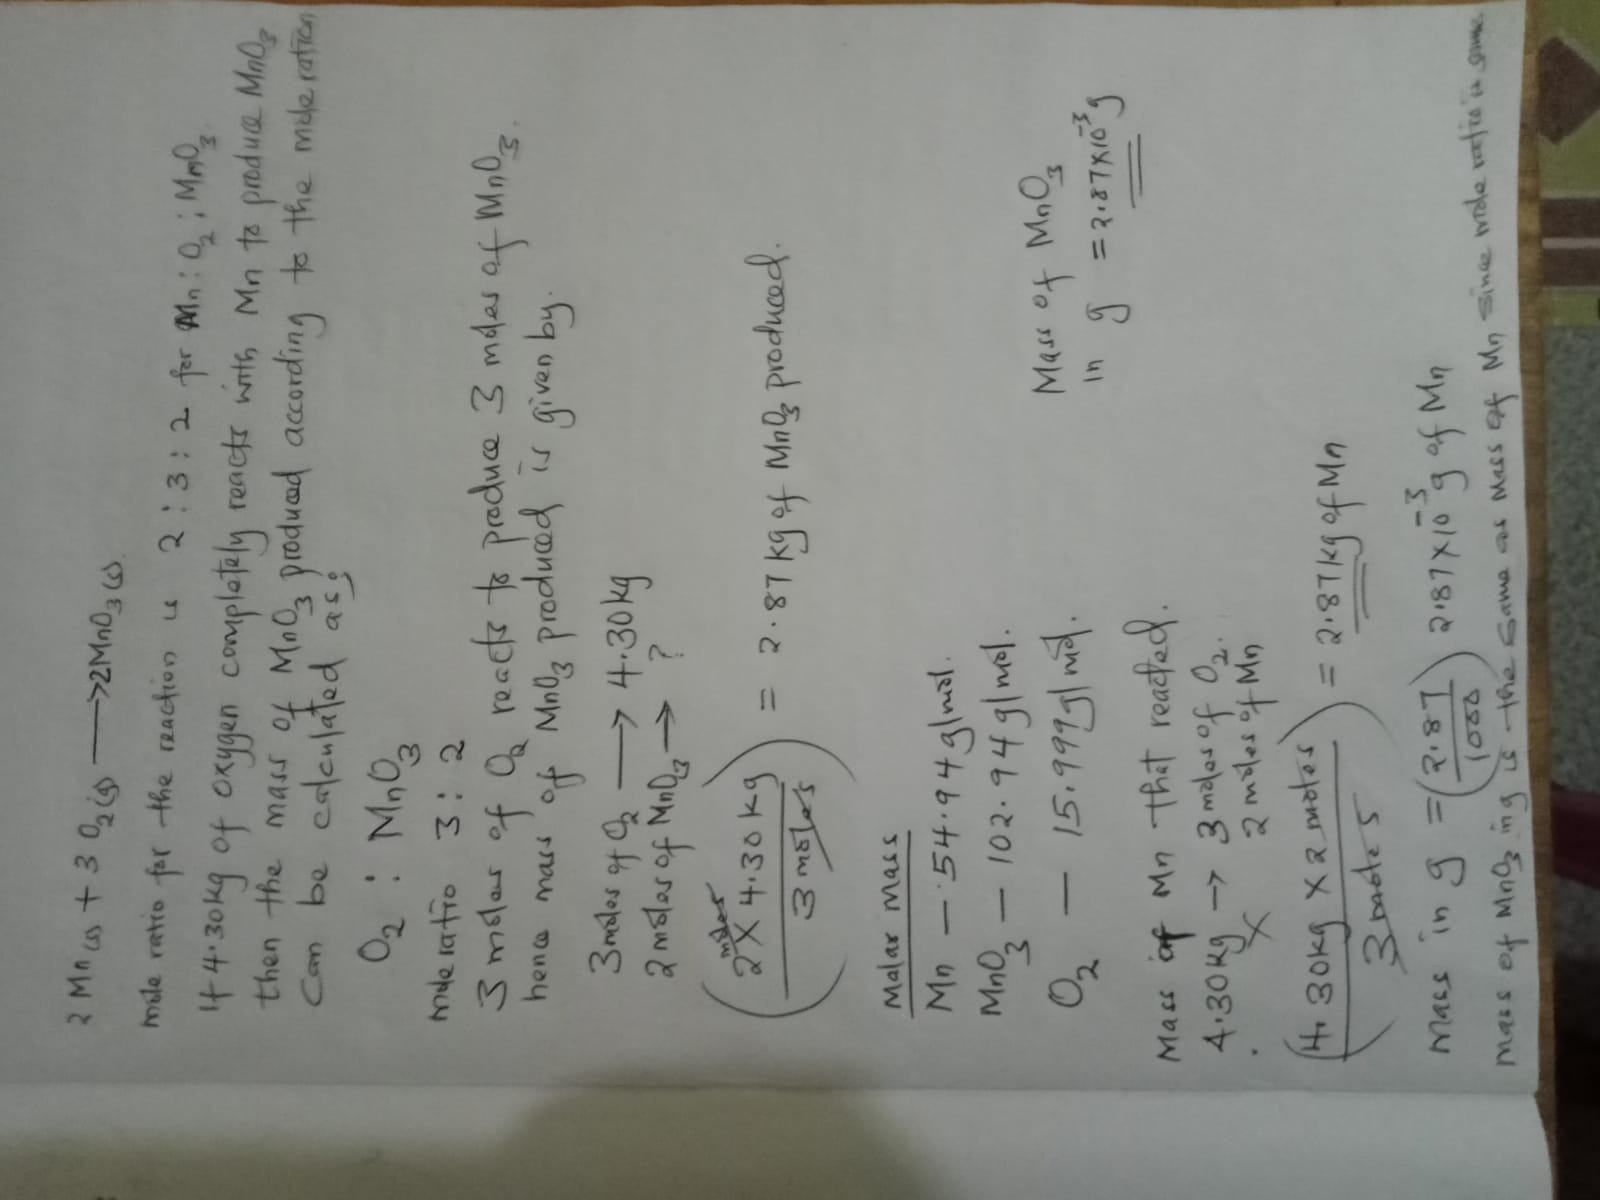 2 Mn(s) + 3 O2(g) ⟶ 2MnO3(s).
mole ratio for the reaction is 2 : 3 : 2 for Mn : O2 ; MnO3
If 4.30kg of oxygen completely reacts with Mn to produce MnO3
then the mass of MnO3 produced according to the mole ration
can be calculated as;
O2 : MnO3
mole ratio 3 : 2
3 moles of O2 reacts to produce 3 moles of MnO3.
hence mass of MnO3 produced is given by.
3moles of O2 ⟶ 4.30kg
2 moles of MnO3 ⟶ ?
(2 moles × 4.30 kg / 3 moles) = 2.87 kg of MnO3 produced.
Molar Mass
Mn — 54.94 g/mol.
MnO3 — 102.94 g/mol.
O2 — 15.999g/mol.
Mass of MnO3
in g = 2.87×10^-3 g
Mass of Mn that reacted.
4.30kg → 3 moles of O2.
X 2 moles of Mn
(4.30kg × 2 moles / 3 moles) = 2.87kg of Mn
mass in g = (2.87 / 1000) 2.87×10^-3 g of Mn
mass of MnO3 in g is the same as mass of Mn since mole ratio is same